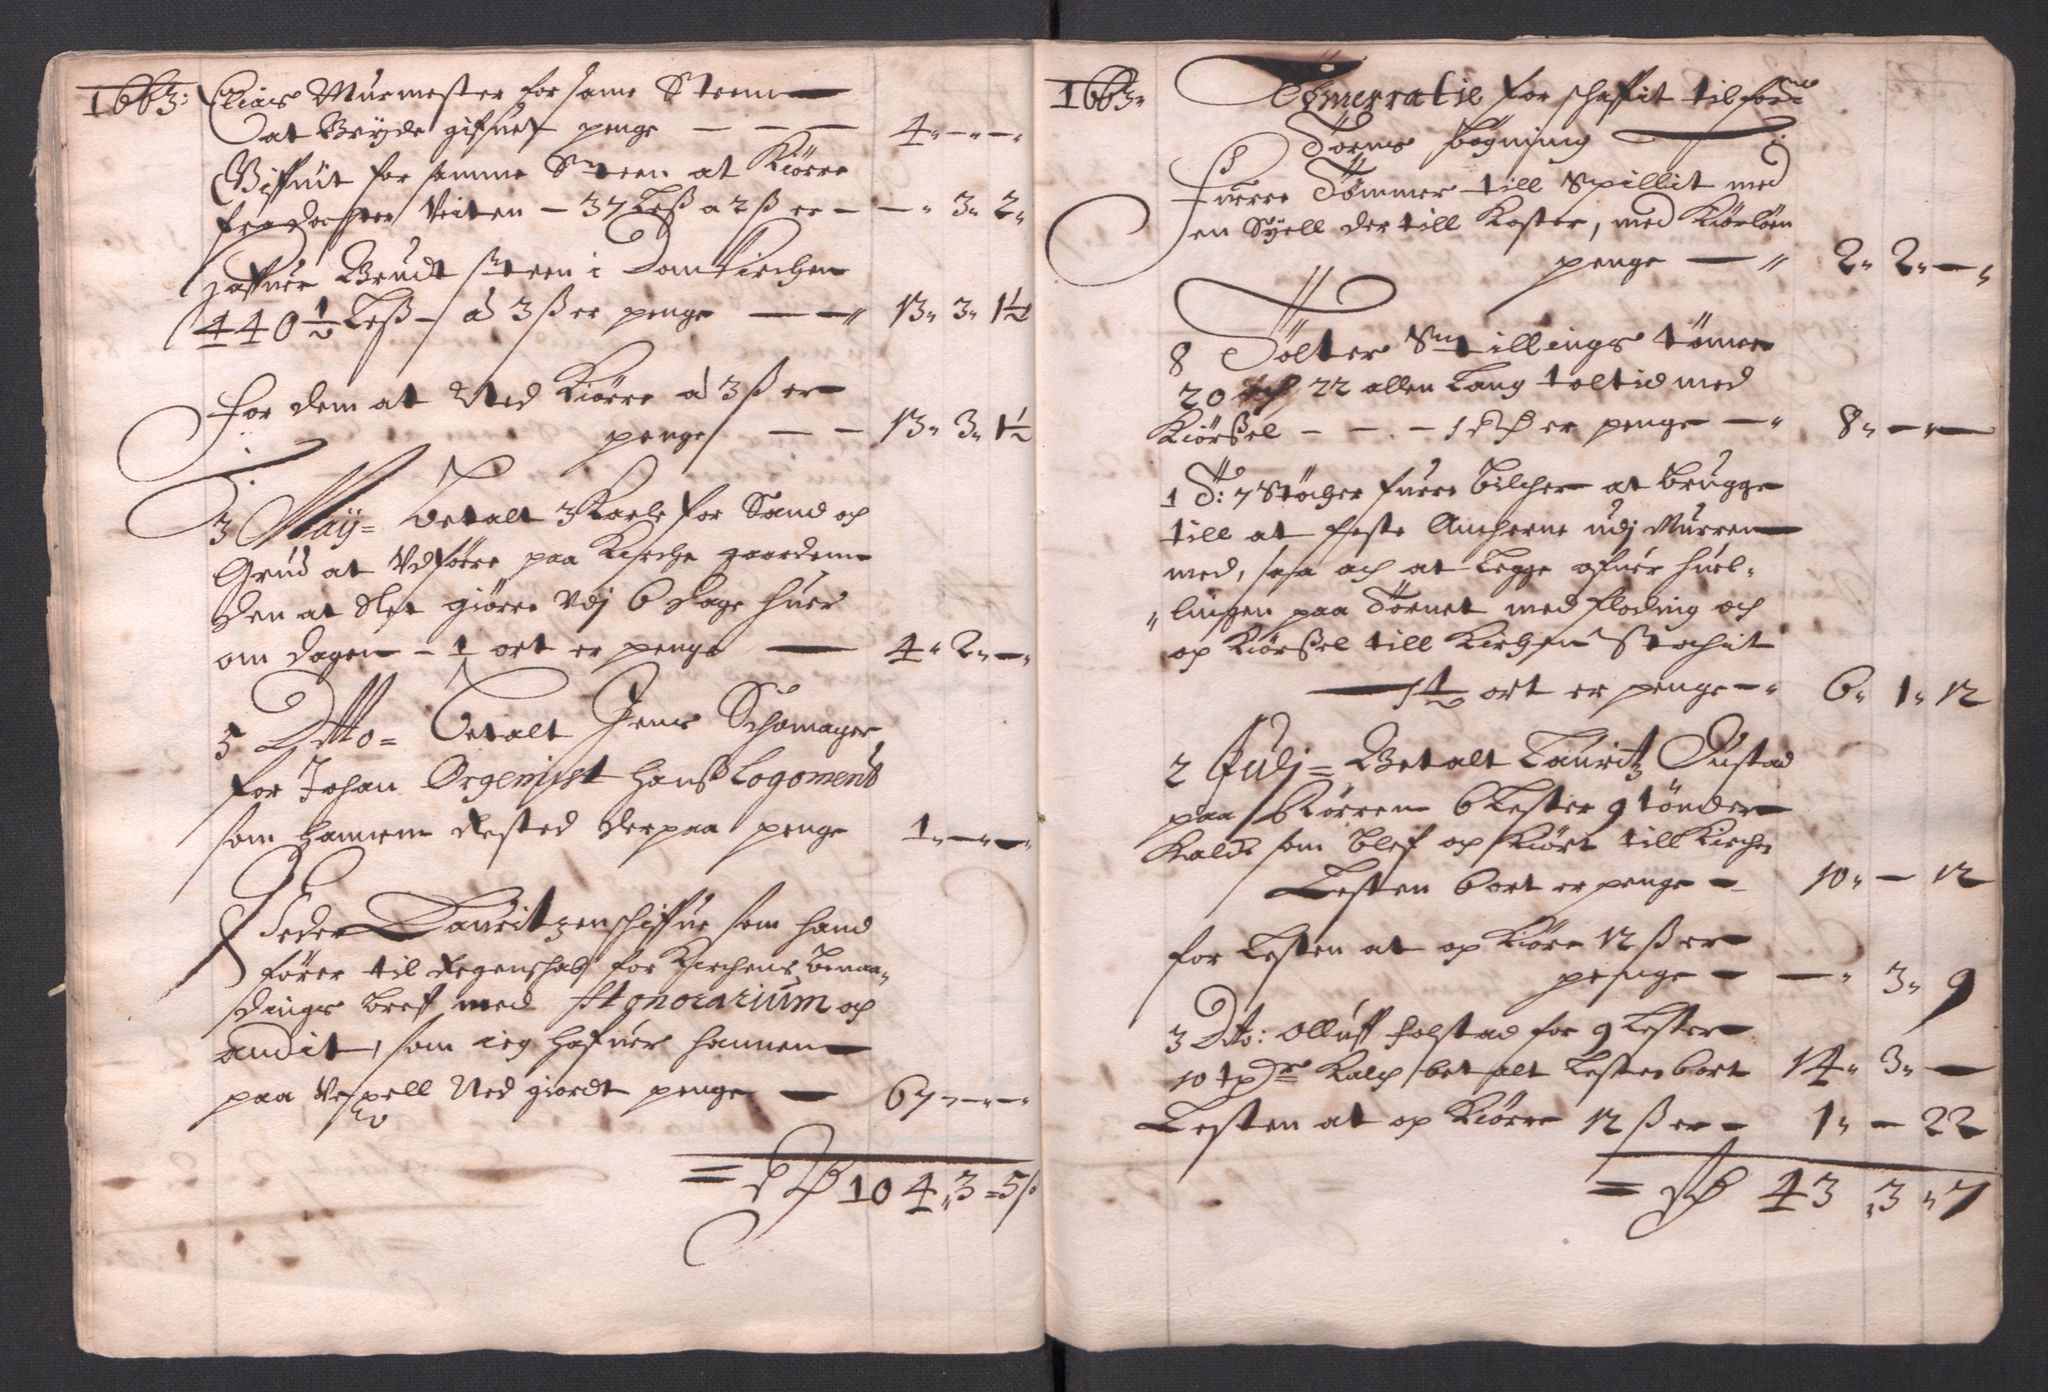 1663:
Elias Murmester for same Steen
at Bryde giffuet penge — — — 4 " — " — "
Giffuit for samme Steen at Kiørre
fra Veiten — 37 Leß a 2 ß er — — " 3 " 2 "
Haffuer Brudt Steen i Domkirchen
440½ Leß — a 3 ß er penge — — " 13 " 3 " 1½
for dem at Ned Kiørre a 3 ß er
penge — — 13 " 3 " 1½
3 Maij = betalt 3 Karle for Sand och
Grud at Vdføere paa Kirche gaarden
den at slet giørre Vdj 6 dage huer
om dagen — 1 ort er penge — 4 " 2 " — "
5 Ditto = Betalt Jens Schomager
for Johan Orgenist Hanß Logoments
som hannem Rested derpaa penge 1 " — " — "
Peder Lauritzen schiffue som hand
fører til Regenschab for Kirchens Benaa-
dings bref med Honorarium och
andit, som ieg hafuer hannem
paa Vexell Ned giordt penge — 67 " — " — "
= Rdr 104 " 3 = 5 ß
1663 "
Tømerratie forschaffit til forne
Torns bøgning
Furre Tømmer till Spillit med
en Syell der till Koster, med Kiørløen
penge — " 2 " 2 " — "
8 Tolter Stillings tømer
20 och 22 allen Lang tolten med
Kiørßel — — — 1 Rdr er penge — " 8 " — " —
1 T: 7 Støcher furre bilcher at brugge
till at feste Ancherne udj Murren
med, saa och at Legge ofuer huel-
" lingen paa Tornet med floding och
op Kiørßel till Kirchen Støchit
— 1½ ort er penge — " 6 " 1 " 12
2 Julj = Betalt Lauritz Oustad
paa 6 Lester 9 tønder
Kalch som blef op Kiørt till Kirchen
Lesten 6 ort er penge — 10 " — 12
for Lesten at op Kiøre 12 ß er
penge — — " 3 " 9
3 Dto: Olluff Holstad for 9 Lester
10 tndr Kalch betalt Lesten 6 ort 14 " 3 " —
Lesten at op Kiørre 12 ß er — 1 " — 22
= Rdr 43 " 3 " 7